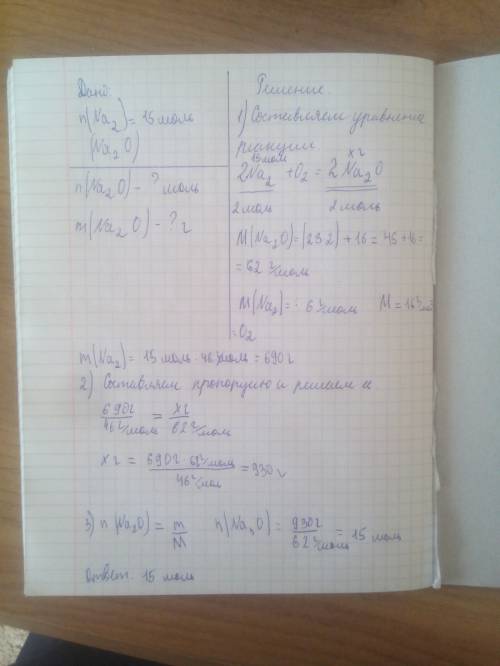 Дано:
n(Na₂) = 15 моль
(Na₂O)
n(Na₂O) - ? моль
m(Na₂O) - ? г
Решение.
1) Составляем уравнение
реакции
15 моль x г
2Na₂ + O₂ = 2Na₂O
2 моль 2 моль
M(Na₂O) = (23·2) + 16 = 46 + 16 =
= 62 г/моль
M(Na₂) = 6 г/моль M = 16 г/моль
= O₂
m(Na₂) = 15 моль · 46 г/моль = 690 г
2) Составляем пропорцию и решаем
690 г / 46 г/моль = x г / 62 г/моль
x г = 690 г · 62 г/моль / 46 г/мол = 930 г
3) n(Na₂O) = m / M n(Na₂O) = 930 г / 62 г/моль = 15 моль
Ответ. 15 моль